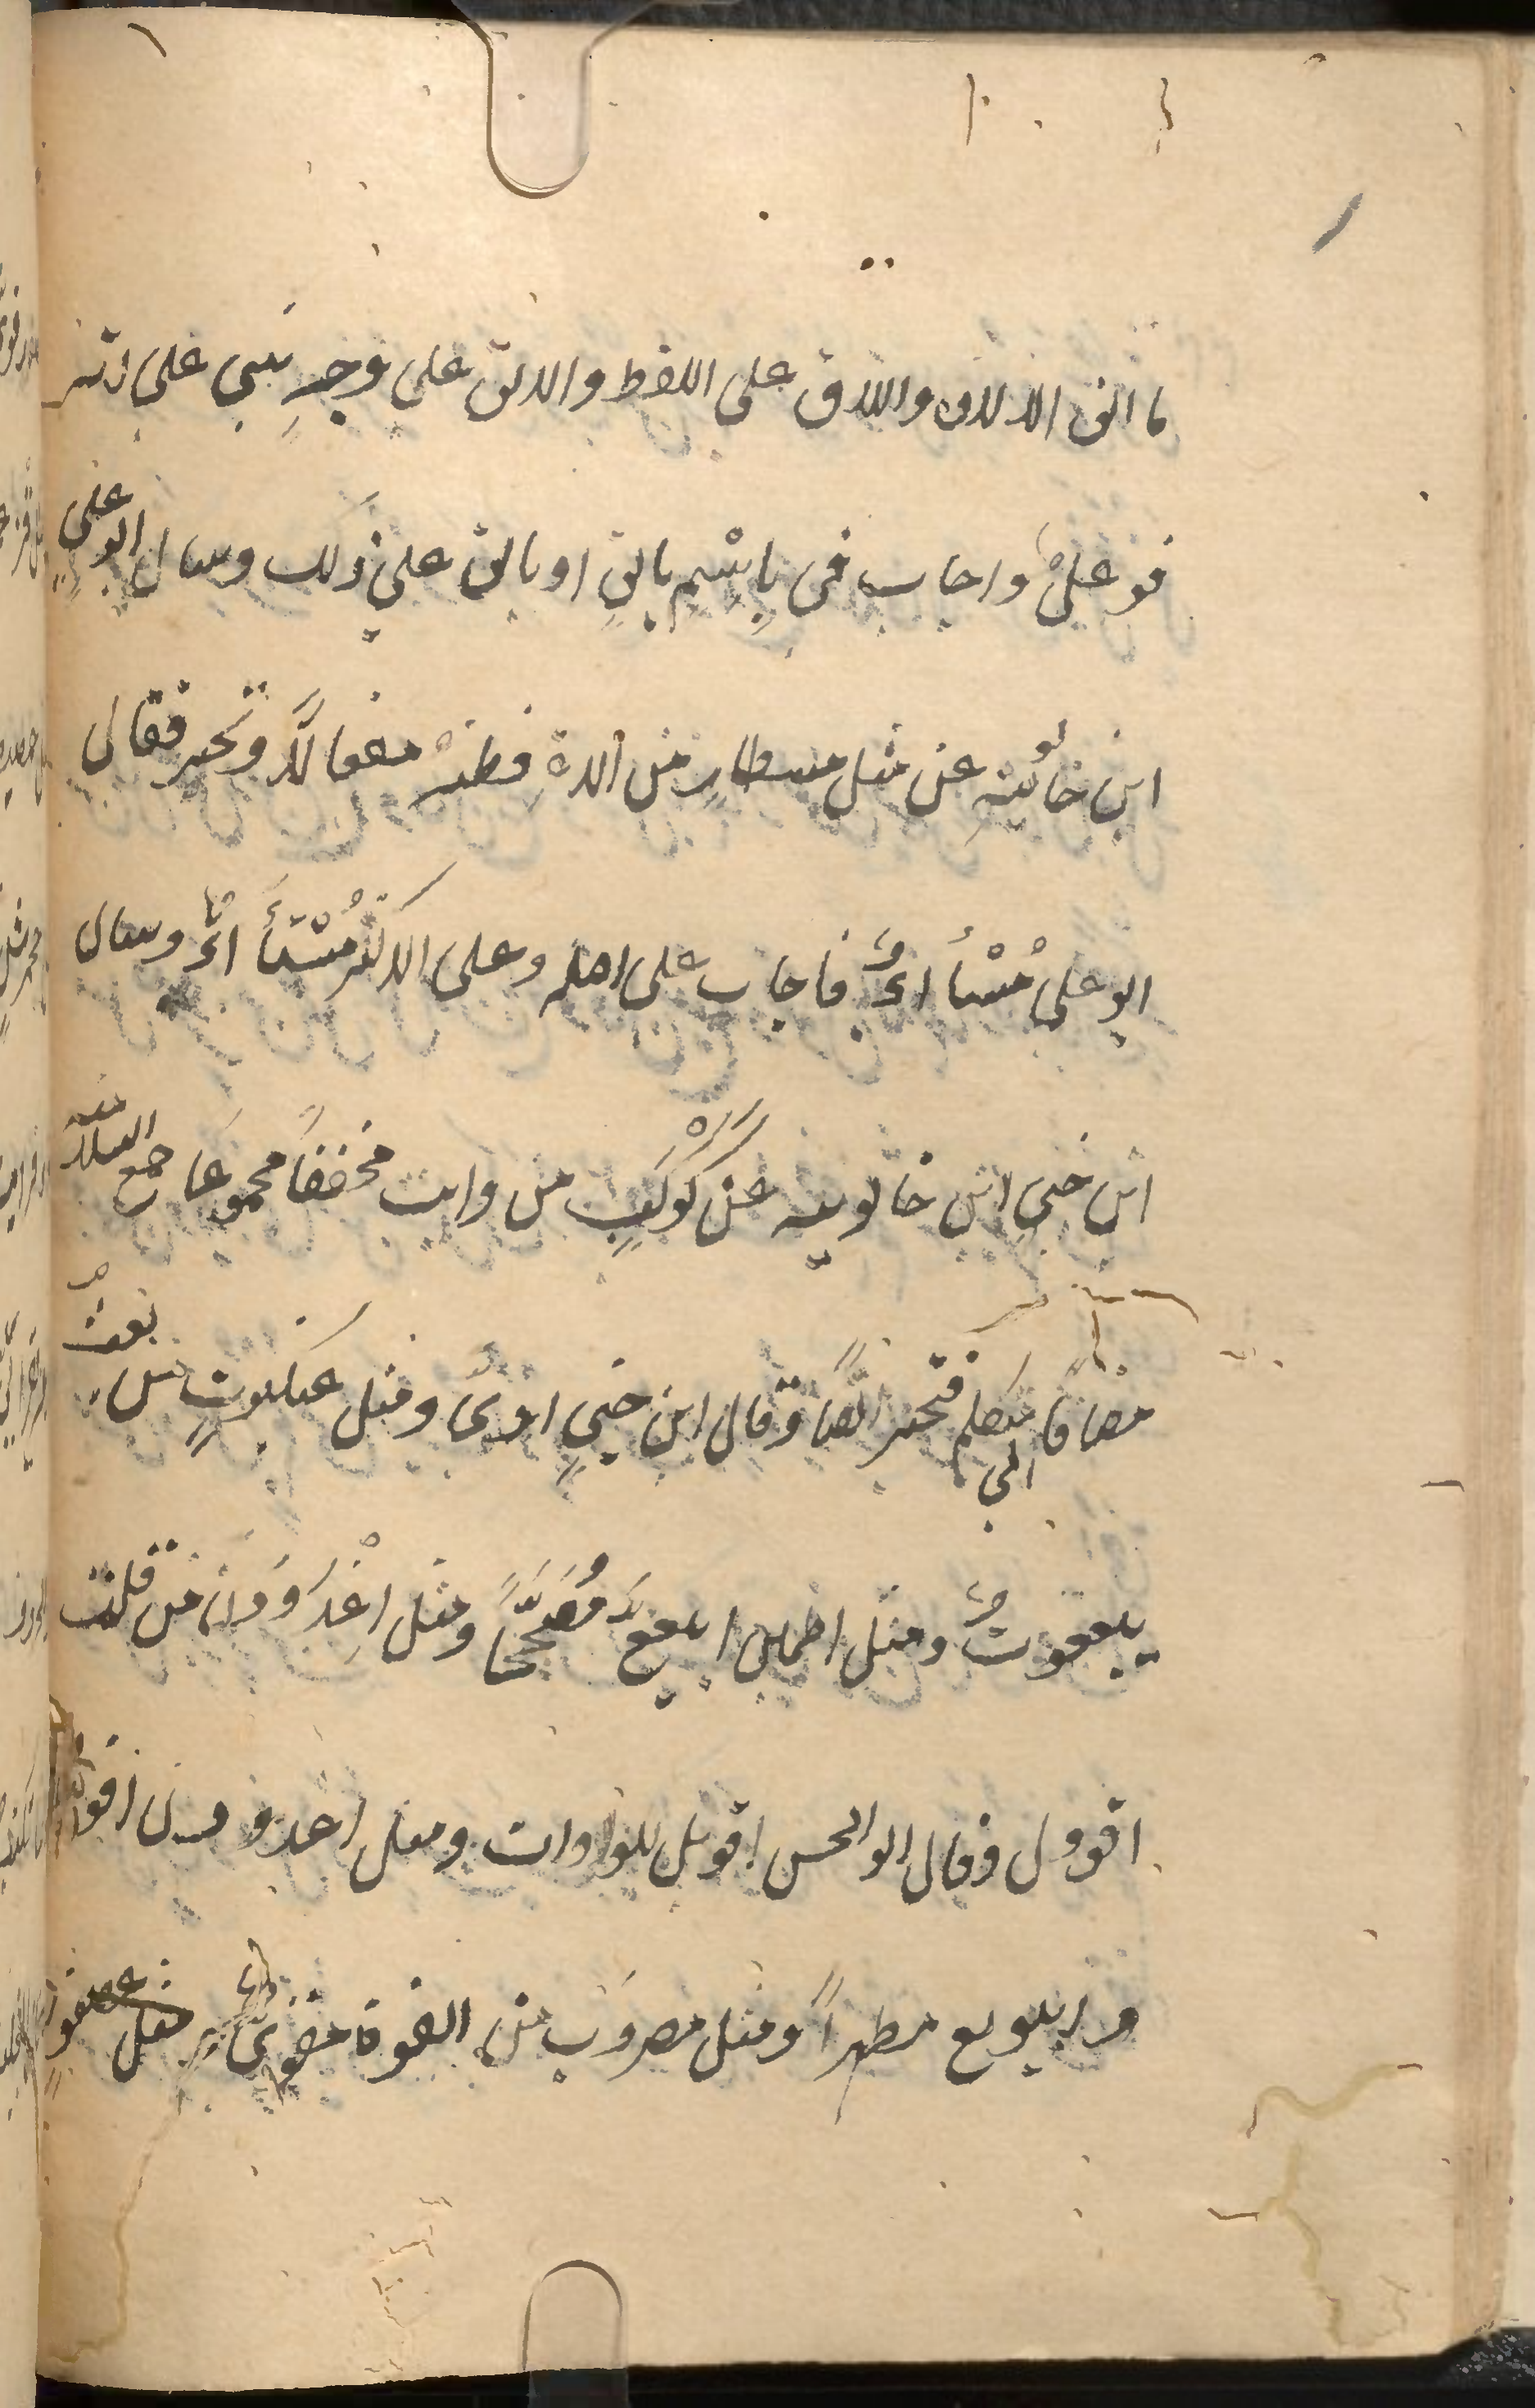 ما الق الالاق واللاق على اللفظ والالق على وجه بنى على انه
فوعل واجاب فى باسم بالق او بالق على ذلك وسال ابو على
ابن خالويه عن مثل مسطار من ااءة فظنه مفعالا وتحير فقال
ابو على مسأاء فاجاب على اصله وعلى الاكثر مستأاء وسال
ابن جنى ابن خالويه عن كوكب من وايت مخففا مجموعا جمع السلامة
مضافا الى متكلم فتحير ايضا وقال ابن جنى اوى ومثل عنكبوت من بعت
بيععوت ومثل اطمان ابيعع مصححا ومثل اغدودن من قلت
اقوول وقال ابو الحسن اقويل للواوات ومثل اغدودن اقووول
و ابيويع مظهرا ومثل مضروب من القوة مقوى مثل عصفور